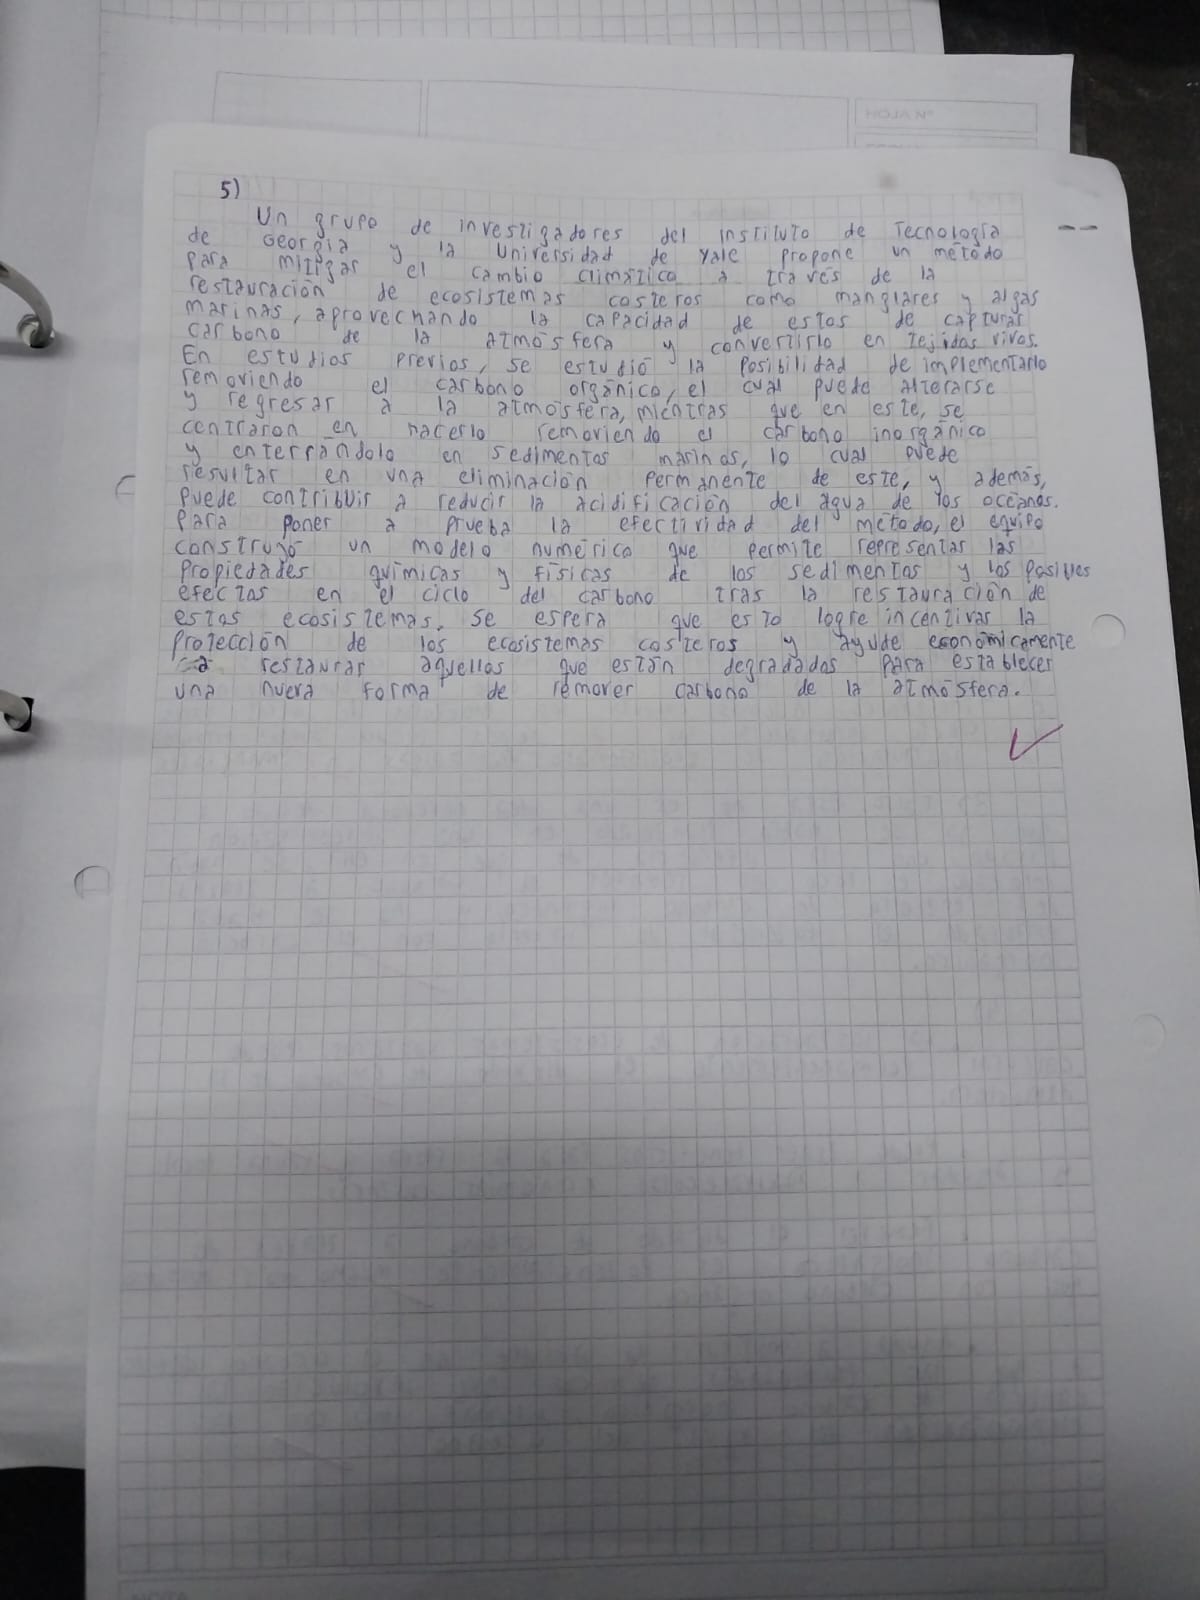 5)
Un grupo de investigadores del instituto de Tecnología
de Georgia y la Universidad de Yale propone un método
para mitigar el cambio climático a través de la
restauración de ecosistemas costeros como manglares y algas
marinas, aprovechando la capacidad de estos de capturar
carbono de la atmósfera y convertirlo en tejidos vivos.
En estudios previos, se estudió la posibilidad de implementarlo
removiendo el carbono orgánico, el cual puede alterarse
y regresar a la atmósfera, mientras que en este, se
centraron en hacerlo removiendo el carbono inorgánico
y enterrándolo en sedimentos marinos, lo cual puede
resultar en una eliminación permanente de este, y además,
puede contribuir a reducir la acidificación del agua de los océanos.
Para poner a prueba la efectividad del método, el equipo
construyó un modelo numérico que permite representar las
propiedades químicas y físicas de los sedimentos y los posibles
efectos en el ciclo del carbono tras la restauración de
estos ecosistemas. Se espera que esto logre incentivar la
protección de los ecosistemas costeros y ayude económicamente
a restaurar aquellos que están degradados para establecer
una nueva forma de remover carbono de la atmósfera.